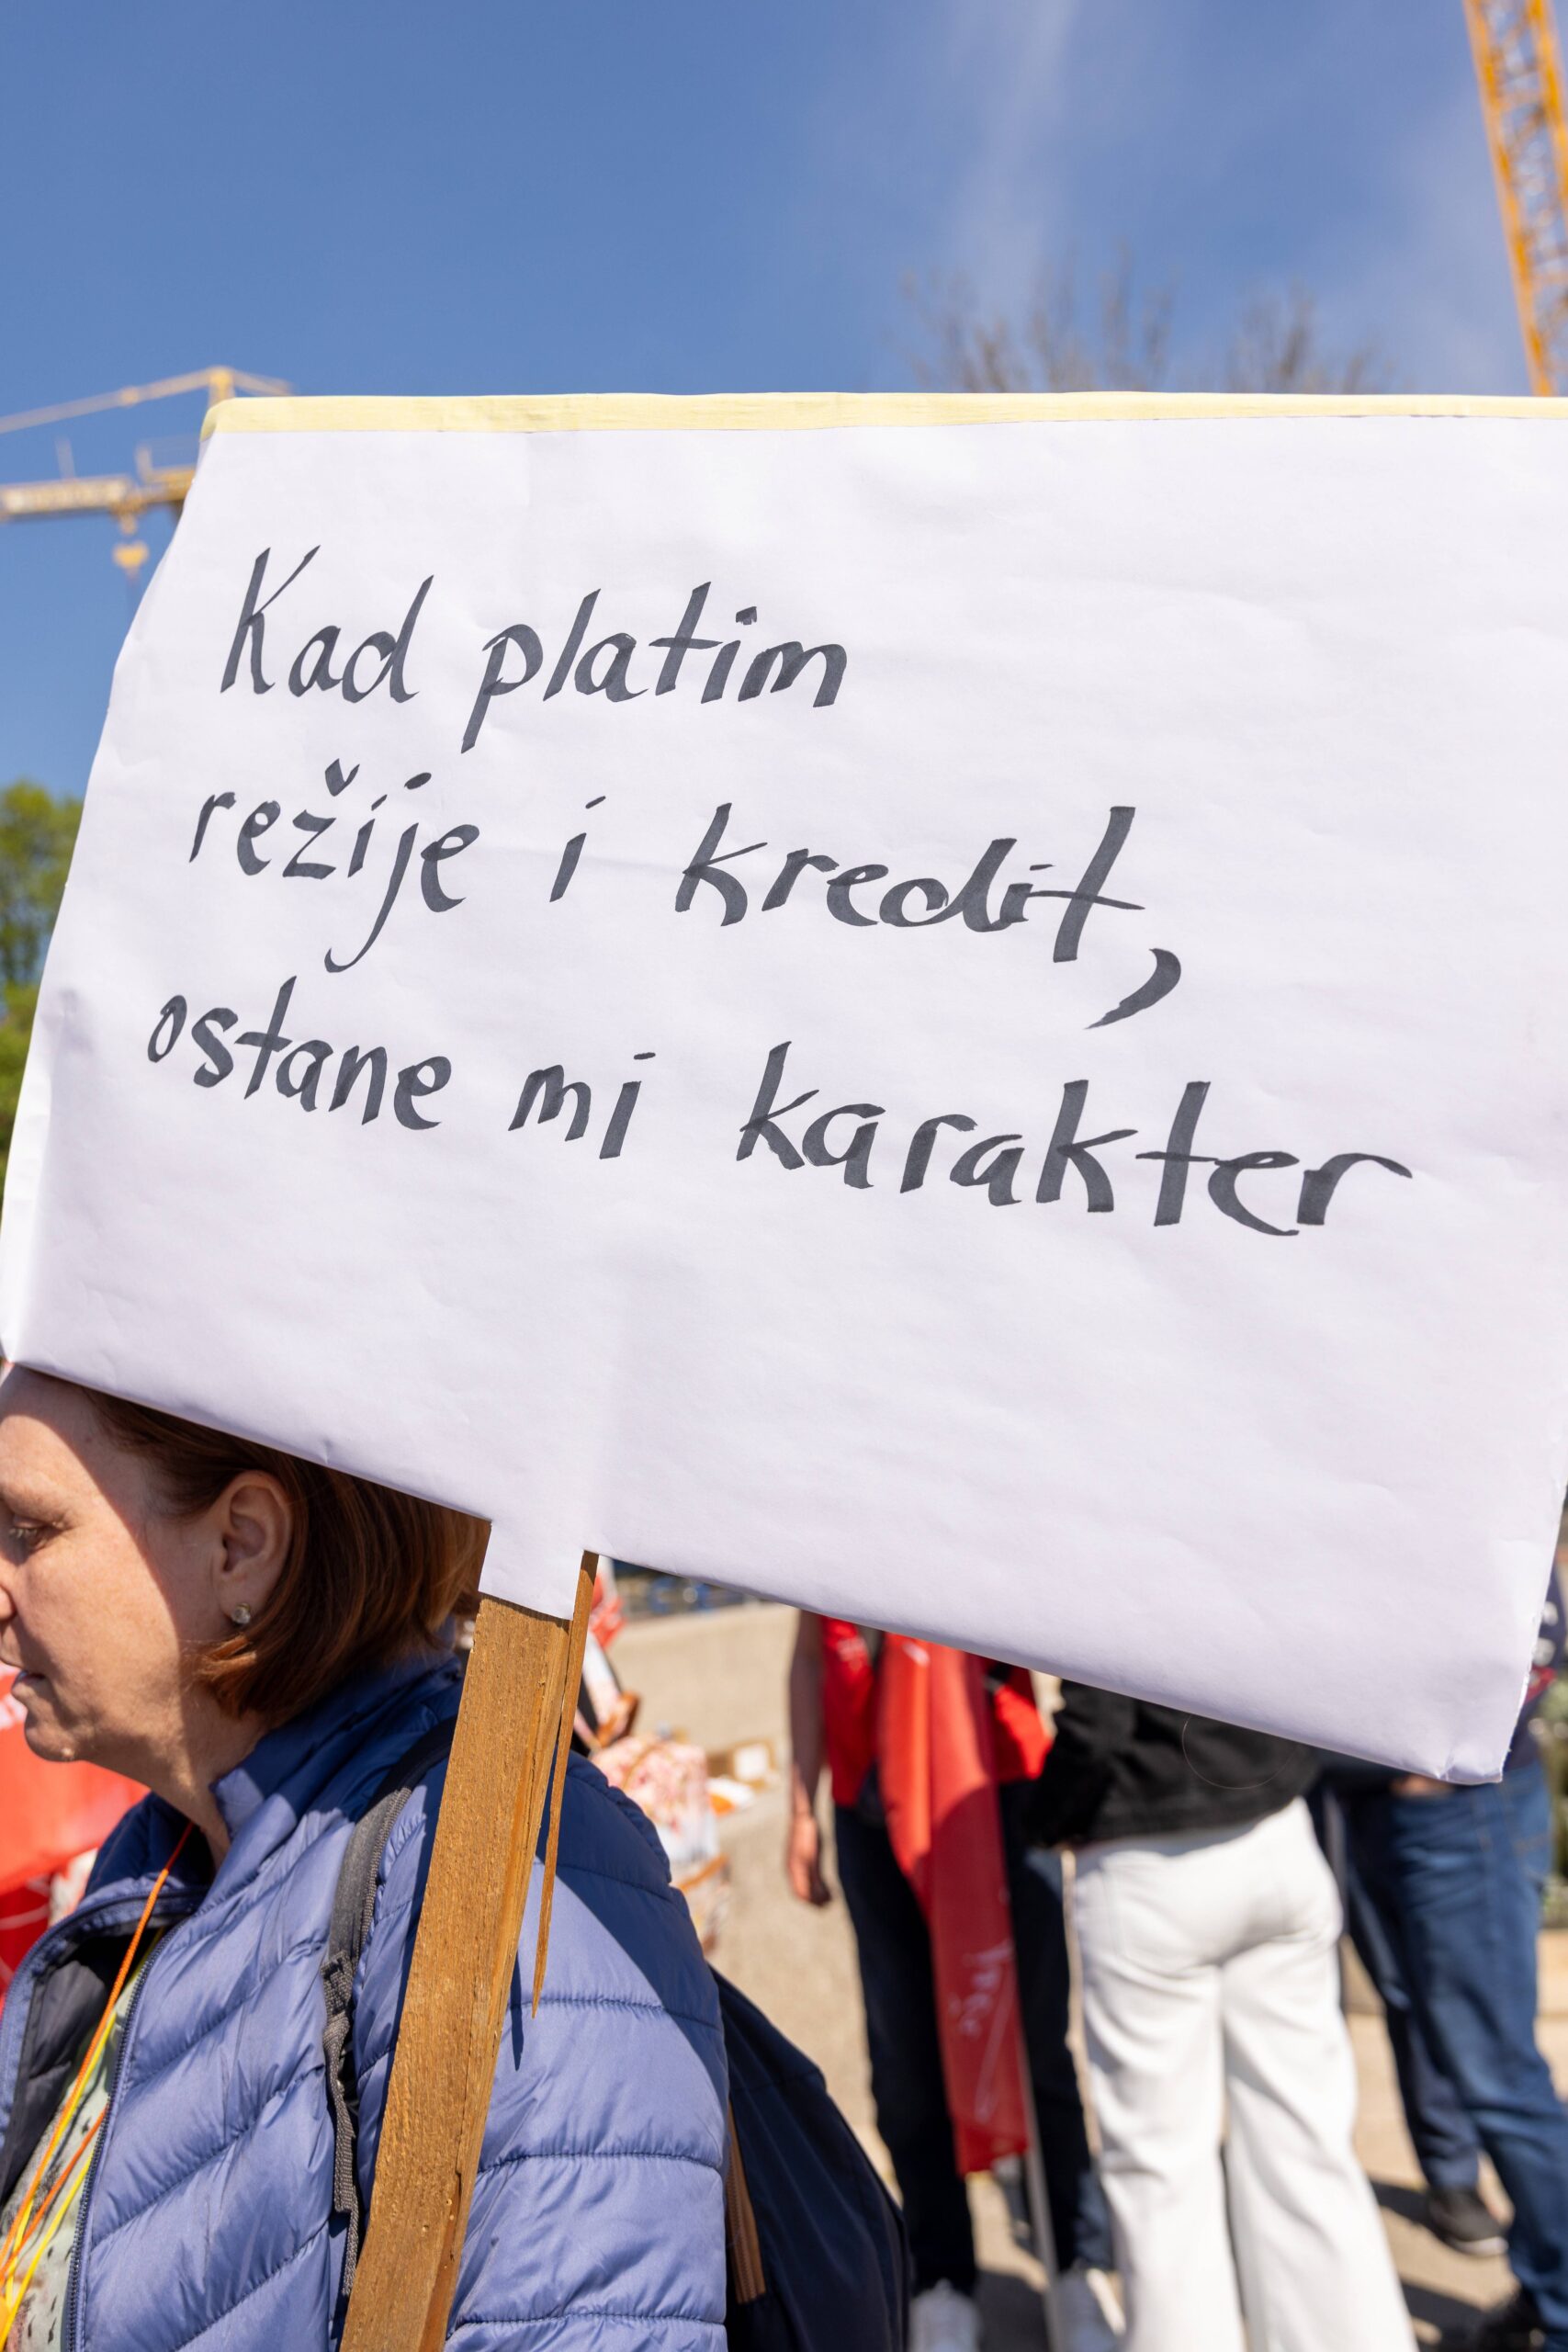 Kad platim
režije i kredit,
ostane mi karakter